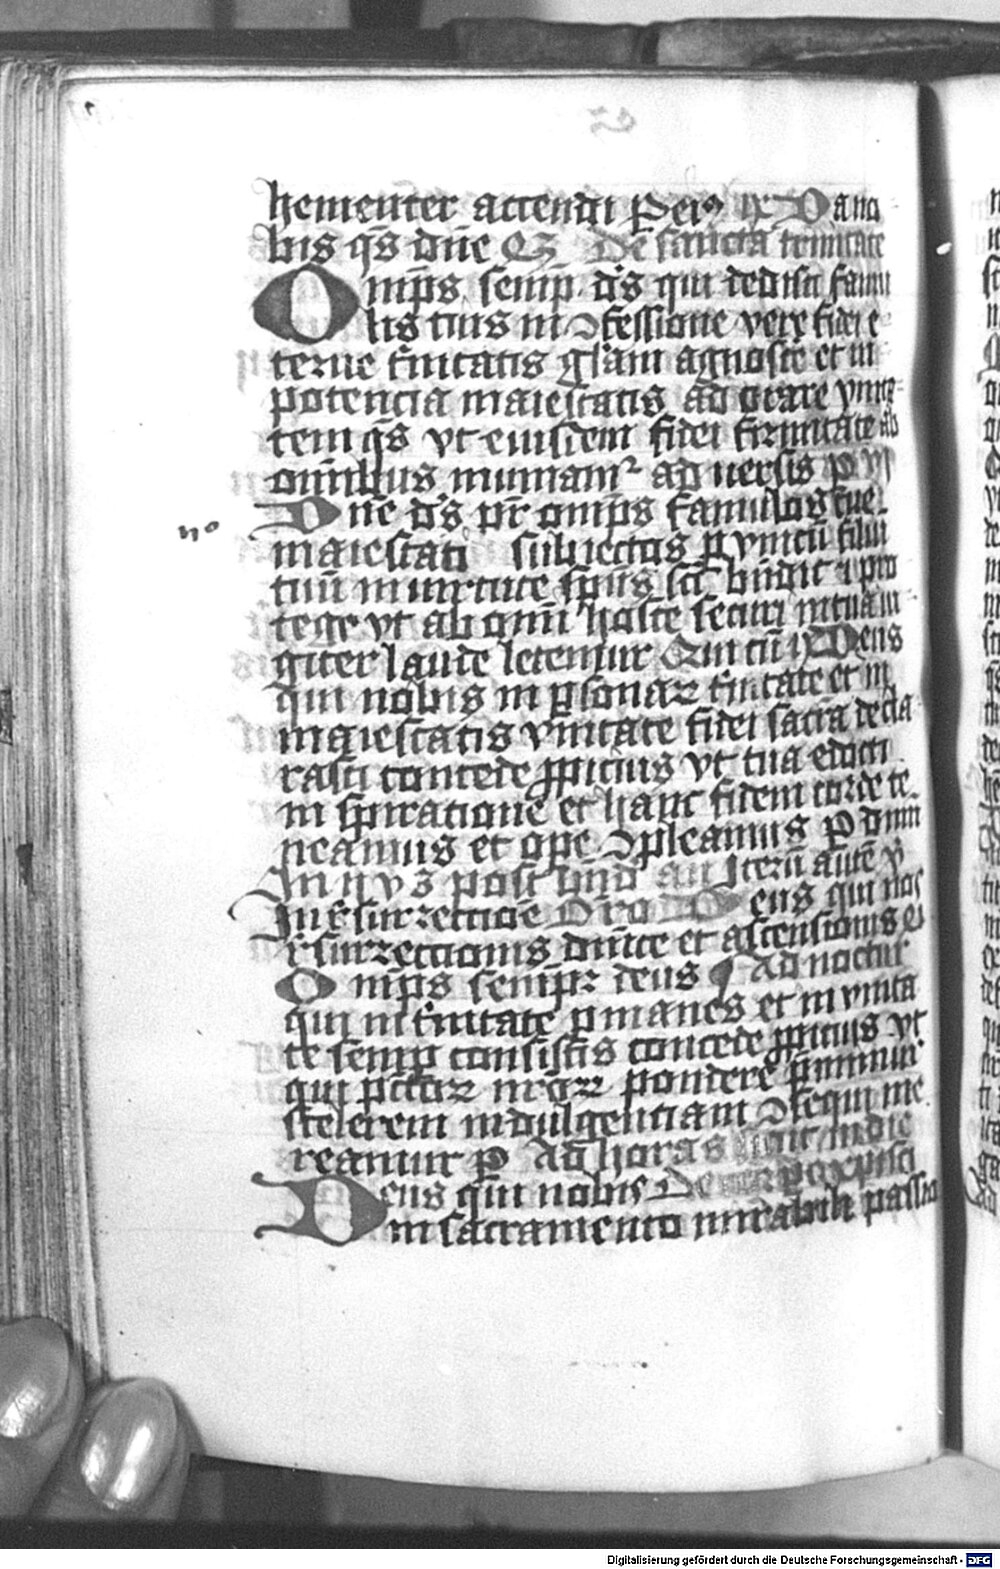 hementer accendi Per
bis qs dne De sancta trinitate
Omps semp ds qui dedisti famu
lis tuis in ꝯfessione vere fidei e
terne tinitatis glam agnosce et in
potencia maiestatis ad orare vnita
tem qs vt eiusdem fidei firmitate ab
omibus muniam ad uersis p
no
Dne ds pr omps famulos tue
maiestati subiectos p vnicu filiu
tuu in uirtute spus sci bndic pro
tege vt ab omi hoste securi in tua iu
giter laude letemur Qui cu Deus
qui nobis in psonar tinitate et in
maiestatis vnitate fidei sacra decla
rasti concede ppicius vt tua edocti
in spiratione et hanc fidem corde te
neamus et ope ꝯpleamus p dnm
post Iteru aute
In rsurrectioe Deus qui nos
rsurrectionis dnice et ascensionis
Omps semp deus Ad noctur
qui in tinitate pmanes et in vnita
te semp consistis concede ppicius vt
qui pctor nror pondere pmimur
scelerem indulgentiam ꝯsequi me
reamur p Ad horas in die
Deus qui nobis De
in sacramento mirabili passio
Digitalisierung gefördert durch die Deutsche Forschungsgemeinschaft - DFG